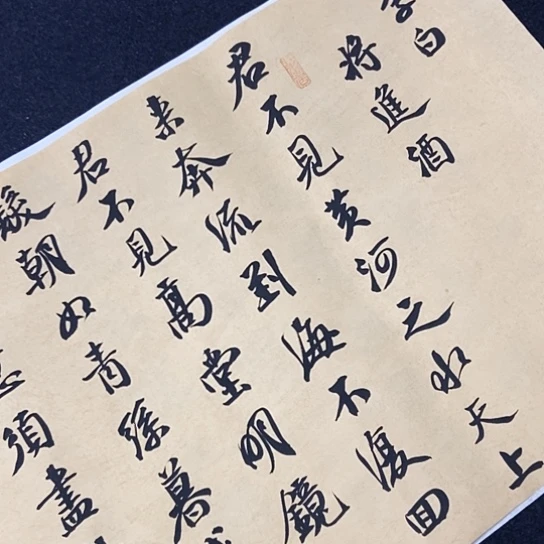 李白
將進酒
君不見黃河之水天上
来奔流到海不復回
君不見高堂明鏡
髮朝如青絲暮
須盡